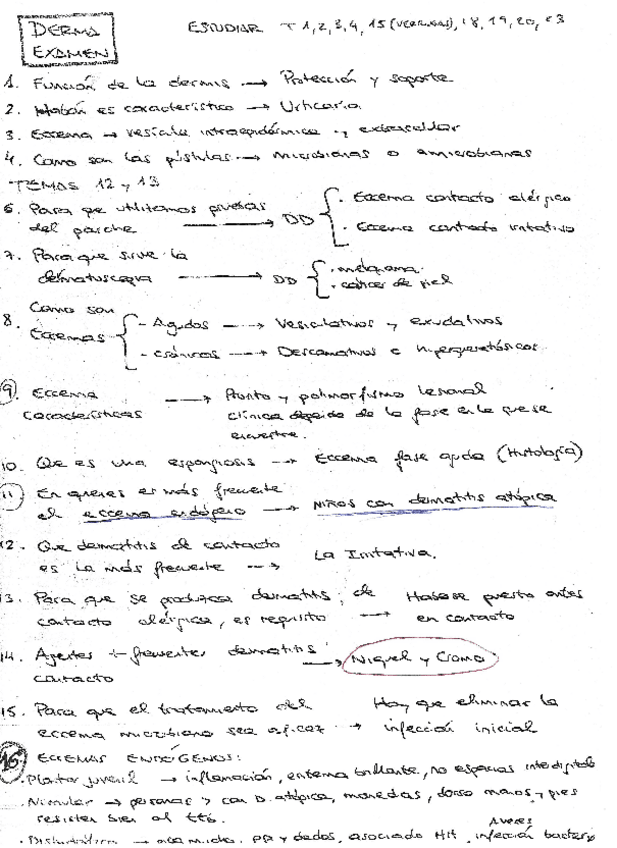 DERMA
EXAMEN
ESTUDIAR T 1,2,3,4,15 (VERRUGAS), 18, 19, 20, 23
1. Función de la dermis → Protección y soporte
2. Habón es característico → Urticaria
3. Eccema → vesícula intraepidérmica y
4. Como son las pústulas → microbianas o amicrobianas
TEMAS 12 y 13
6. Para que utilizamos pruebas
del parche → DD { . Eccema contacto alérgico
. Eccema contacto irritativo
7. Para que sirve la
dermatoscopia → DD { . melanoma
. cáncer de piel
8. Como son
Eccemas { - Agudos → Vesiculativos y exudativos
- crónicos → Descamativos e hiperqueratósicos
9. Eccema → Prurito y polimorfismo lesional
características clínica depende de la fase en la que se
encuentre.
10. Que es una espongiosis → Eccema fase aguda (Histología)
11. En quienes es más frecuente
el eccema endógeno → NIÑOS con dermatitis atópica
12. Que dermatitis de contacto
es la más frecuente → La Irritativa.
13. Para que se produzca dermatitis de Haberse puesto antes
contacto alérgica, es requisito → en contacto
14. Agentes + frecuentes dermatitis → Niquel y Cromo
contacto
15. Para que el tratamiento del Hay que eliminar la
eccema microbiano sea eficaz → infección inicial
16. ECCEMAS ENDÓGENOS:
. Plantar juvenil → inflamación, eritema brillante, no espacios interdigitales
. Numular → personas > con D. atópica, monedas, dorso manos y pies
resisten bien al tto.
A veces
. Dishidrótico → pp y dedos, asociado infección